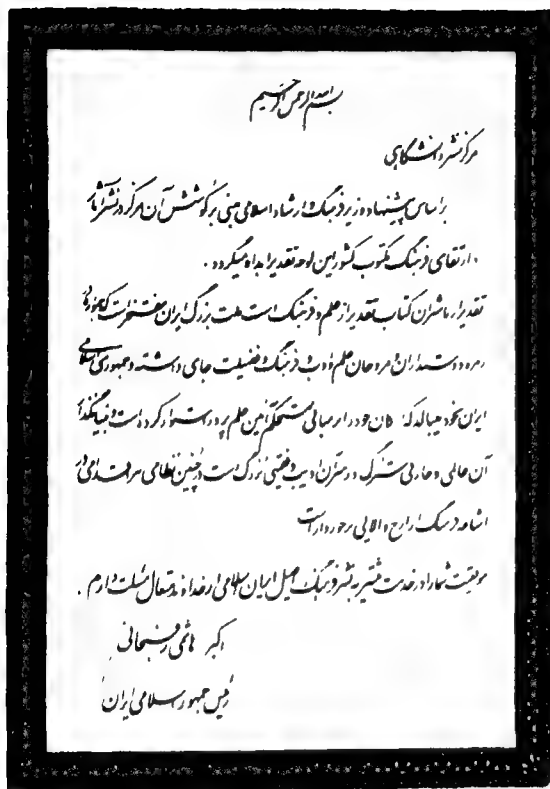 بسم الله الرحمن الرحیم
مرکز نشر دانشگاهی
براساس پیشنهاد وزیر فرهنگ و ارشاد اسلامی مبنی بر کوشش آن مرکز در نشر آثار
و ارتقای فرهنگ مکتوب کشور این لوحه تقدیر اهداء میگردد.
تقدیر از ناشران کتاب تقدیر از علم و فرهنگ است ملت بزرگ ایران مفتخر است که همواره در
زمره دوستداران و مروجان علم و ادب و فرهنگ و فضیلت جای داشته و جمهوری اسلامی
ایران بخود میبالد که ارکان خود را بر مبانی مستحکم آئین علم پرور استوار کرده است و بنیانگذار
آن عالمی و عارفی سترگ و متفکری ادیب و فقیهی بزرگ است در چنین نظامی هر اقدامی در
اشاعه فرهنگ از ارج والایی برخوردار است
موفقیت شما را در خدمت بیشتر به نشر فرهنگ اصیل ایران اسلامی از خداوند متعال مسئلت دارم.
اکبر هاشمی رفسنجانی
رئیس جمهور اسلامی ایران